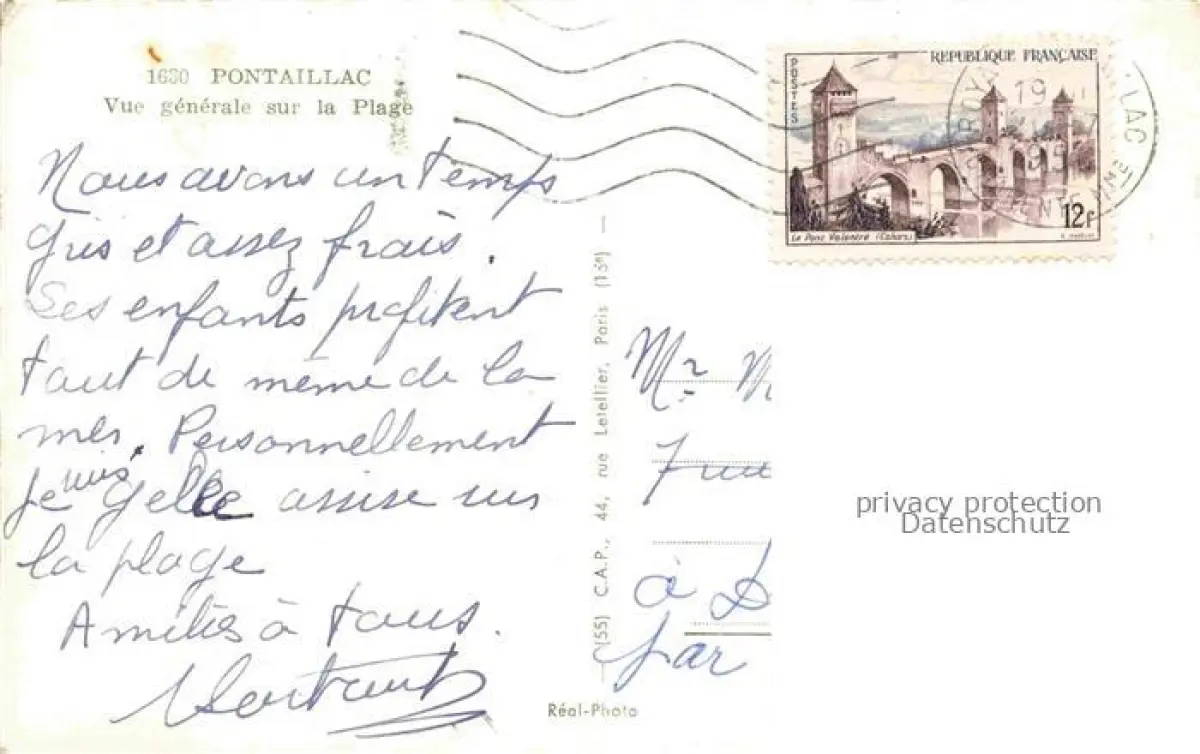 1630 PONTAILLAC
Vue générale sur la Plage
Nous avons un temps
gris et assez frais.
Les enfants profitent
tout de même de la
mer. Personnellement
je suis gelée assise sur
la plage
Amitiés à tous.
(55) C.A.P., 44, rue Letellier, Paris (15e)
Réal-Photo
POSTES
REPUBLIQUE FRANÇAISE
Le Pont Valentré (Cahors)
12F
19
Mr M
à D
par
privacy protection
Datenschutz